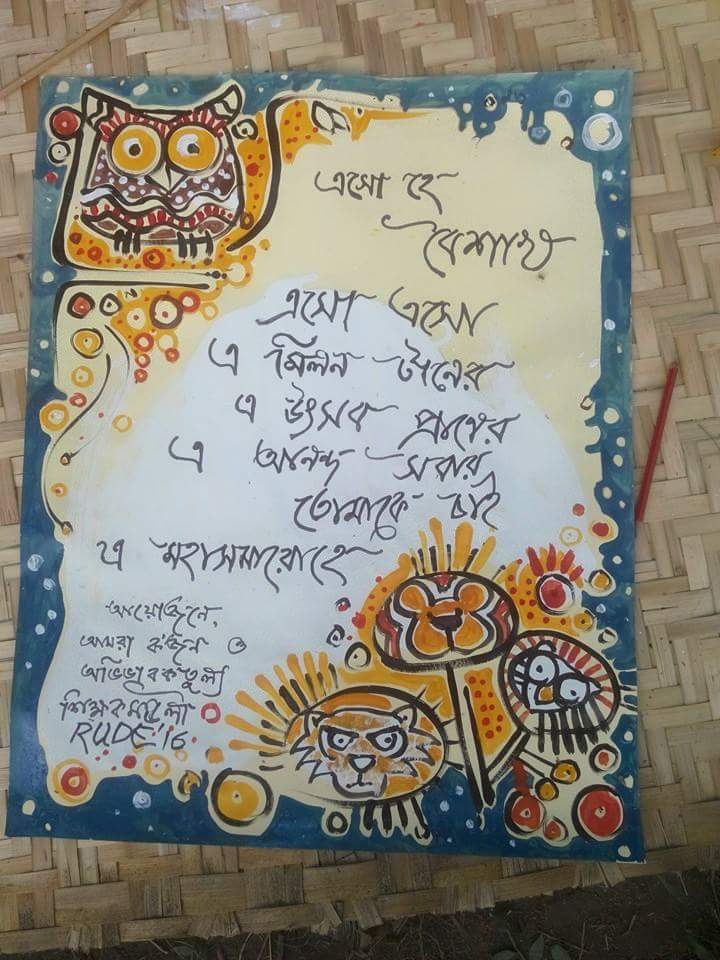 এসো হে
বৈশাখ
এসো এসো
এ মিলন টানের
এ উৎসব প্রাণের
এ আনন্দ সবার
তোমাকে চাই
এ মহাসমারোহে
আয়োজনে,
আমরা ক'জন ও
অভিভাবকতুল্য
শিক্ষকমন্ডলী
RUDE'16